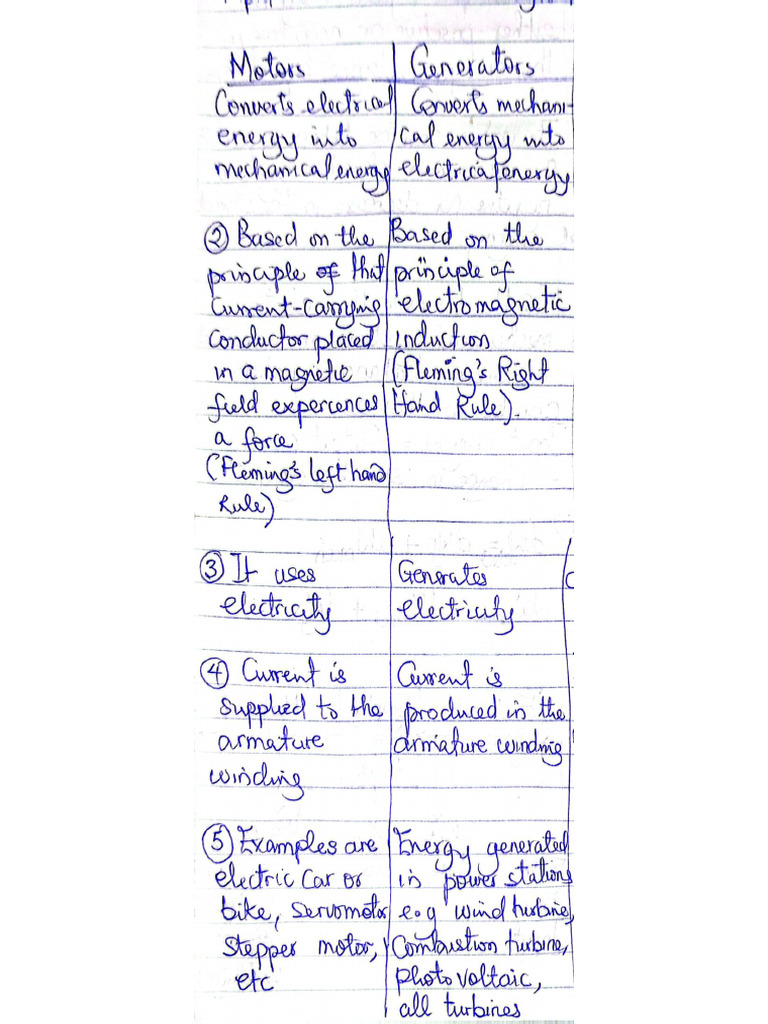 Motors
Generators
Converts electrical
energy into
mechanical energy
Converts mechani-
cal energy into
electrical energy
② Based on the
principle of that
Current-Carrying
Conductor placed
in a magnetic
field expercences
a force
(Fleming's left hand
Rule)
Based on the
principle of
electromagnetic
induction
(Fleming's Right
Hand Rule).
③ It uses
electricity
Generates
electricity
④ Current is
supplied to the
armature
winding
Current is
produced in the
armature winding
⑤ Examples are
electric Car or
bike, servomotor
stepper motor,
etc
Energy generated
in power stations
e.g wind turbine,
Combustion turbine,
photovoltaic,
all turbines